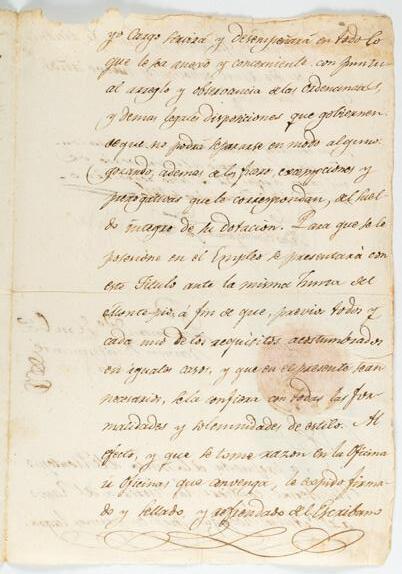 yo Cargo servirá y desempeñará en todo lo
que le sea anexo y concerniente con puntu
al arreglo y observancia de las ordenanzas,
y demas legales disposiciones que gobiernen
de que no podrá separarse en modo alguno
gozando, ademas de los fueros, exempciones y
prerogativas que le correspondan, del suel
do integro de su dotacion. Para que se le
posesione en el Empleo se presentará con
este Titulo ante la misma Junta del
Monte pio, á fin de que, previos todos y
cada uno de los requisitos acostumbrados
en iguales casos, y que en el presente sean
necesarios, se la confiera con todas las for
malidades y solemnidades de estilo. Al
efecto, y que se tome razon en la Oficina
u Oficinas que convenga, le expido firma
do y sellado, y refrendado del Escribano